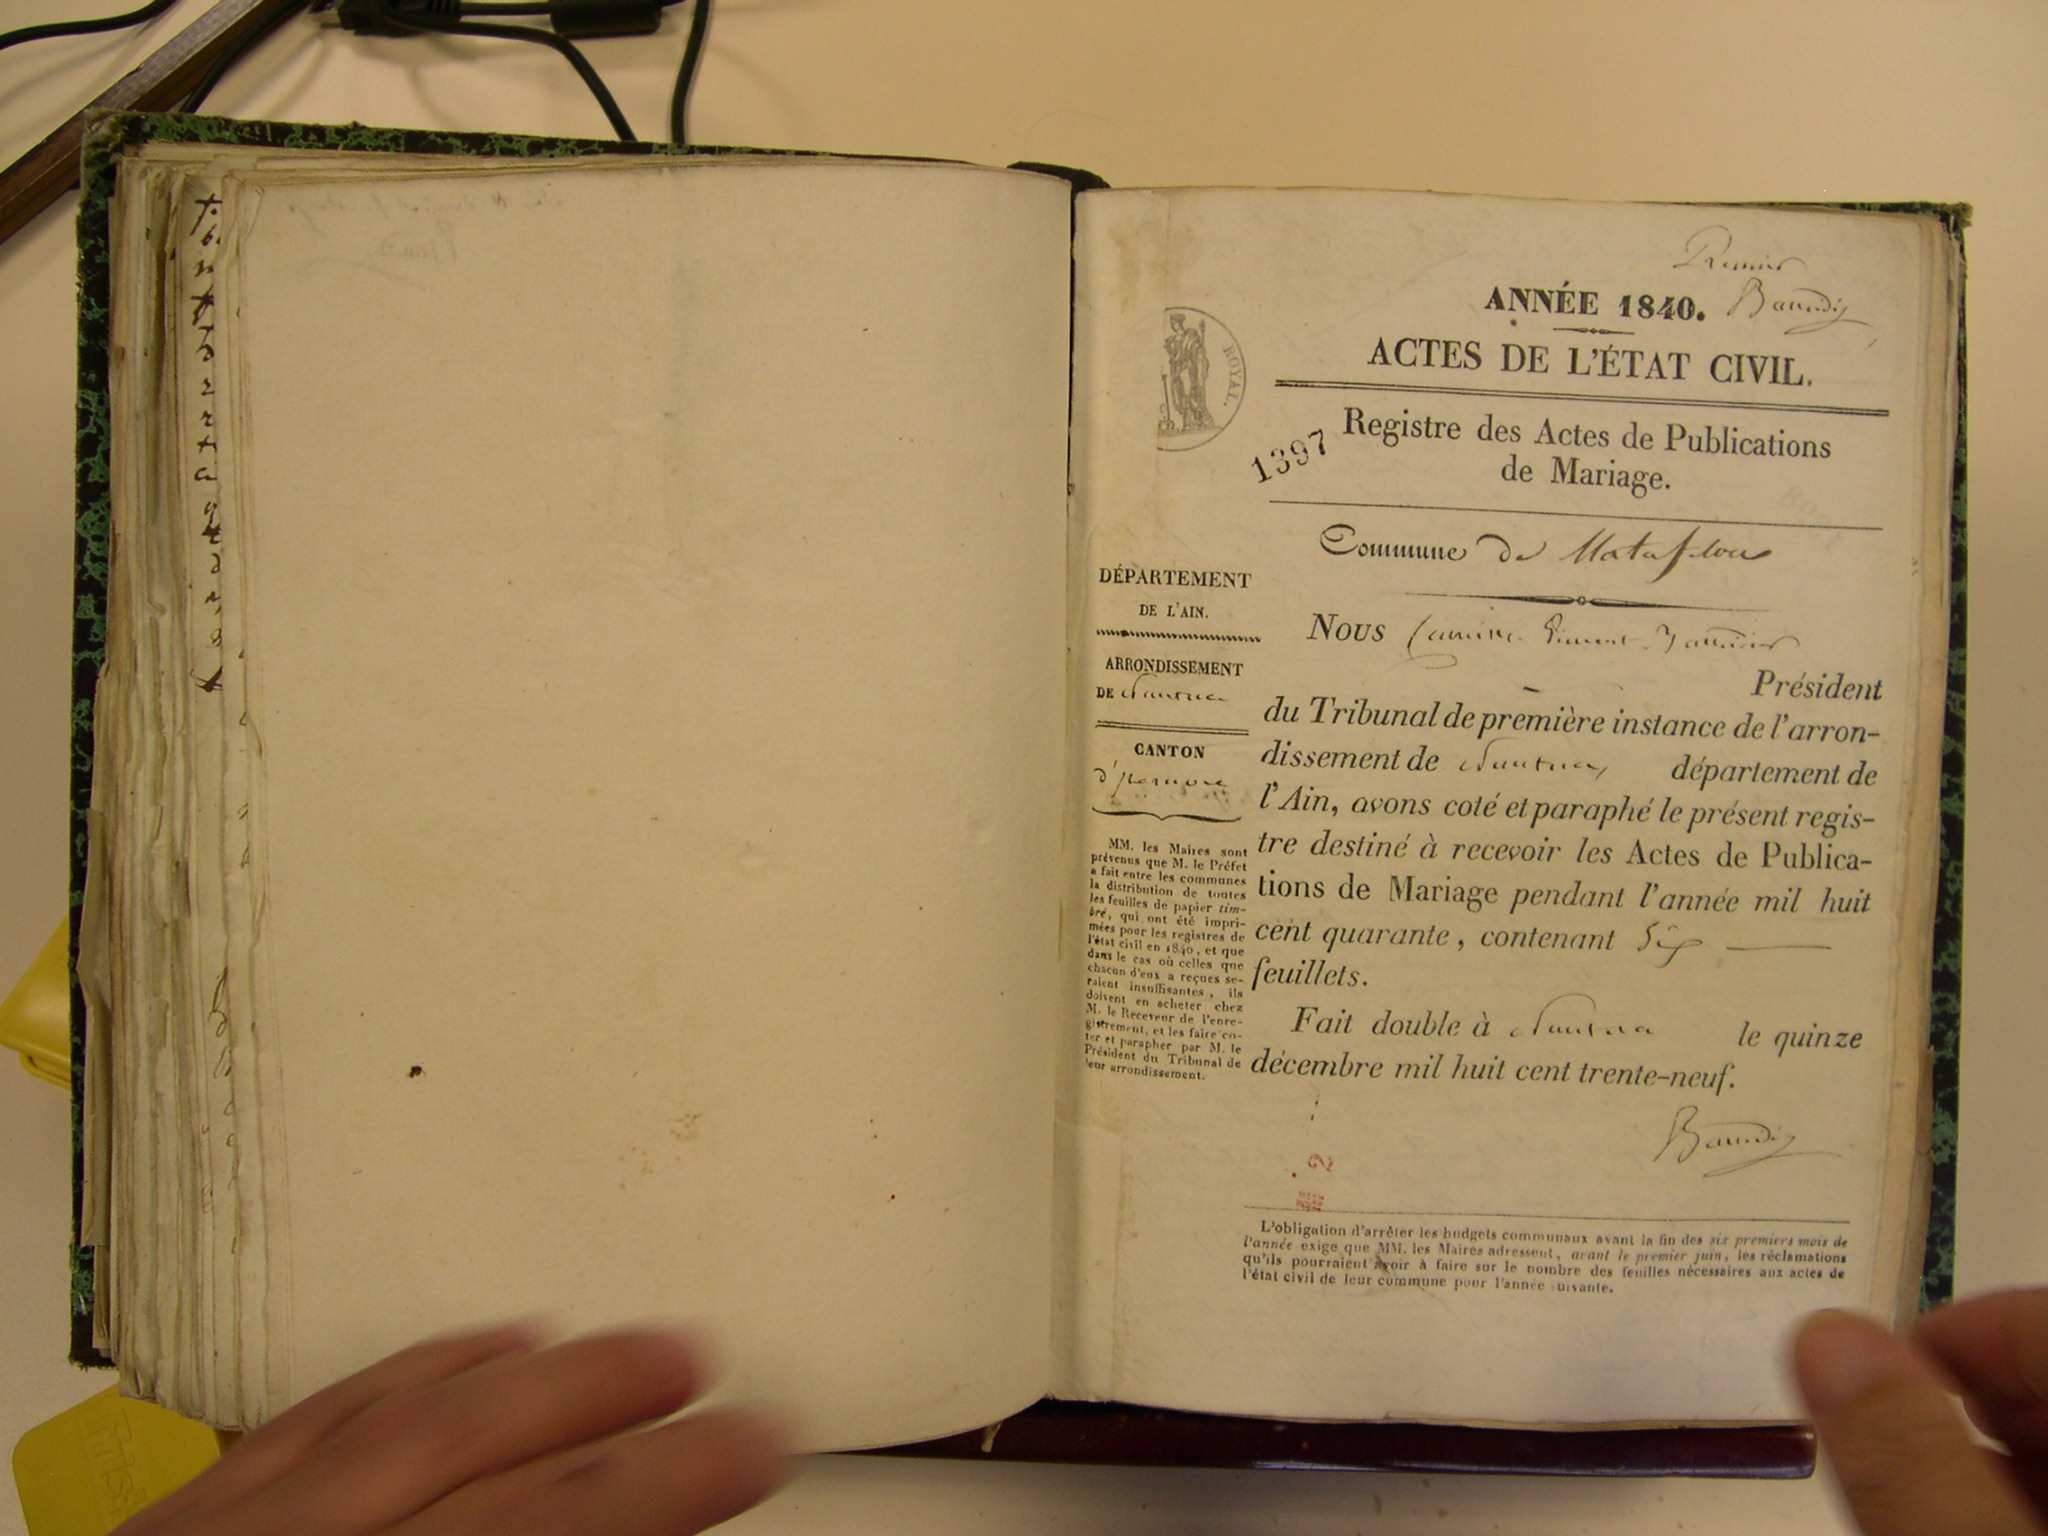 Premier
ANNÉE 1840.
Baundi
ACTES DE L'ÉTAT CIVIL.
ROYAL.
1397
Registre des Actes de Publications
de Mariage.
Commune de Mataflou
DÉPARTEMENT
DE L'AIN.
ARRONDISSEMENT
DE Nantua
CANTON
d'izernore
MM. les Maires sont
prévenus que M. le Préfet
a fait entre les communes
la distribution de toutes
les feuilles de papier tim-
bré, qui ont été impri-
mées pour les registres de
l'état civil en 1840, et que
dans le cas où celles que
chacun d'eux a reçues se-
raient insuffisantes, ils
doivent en acheter chez
M. le Receveur de l'enre-
gistrement, et les faire co-
ter et parapher par M. le
Président du Tribunal de
leur arrondissement.
Nous
Président
du Tribunal de première instance de l'arron-
dissement de Nantua, département de
l'Ain, avons coté et paraphé le présent regis-
tre destiné à recevoir les Actes de Publica-
tions de Mariage pendant l'année mil huit
cent quarante, contenant Six
feuillets.
Fait double à Nantua le quinze
décembre mil huit cent trente-neuf.
2
L'obligation d'arrêter les budgets communaux avant la fin des six premiers mois de
l'année exige que MM. les Maires adressent, avant le premier juin, les réclamations
qu'ils pourraient avoir à faire sur le nombre des feuilles nécessaires aux actes de
l'état civil de leur commune pour l'année suivante.